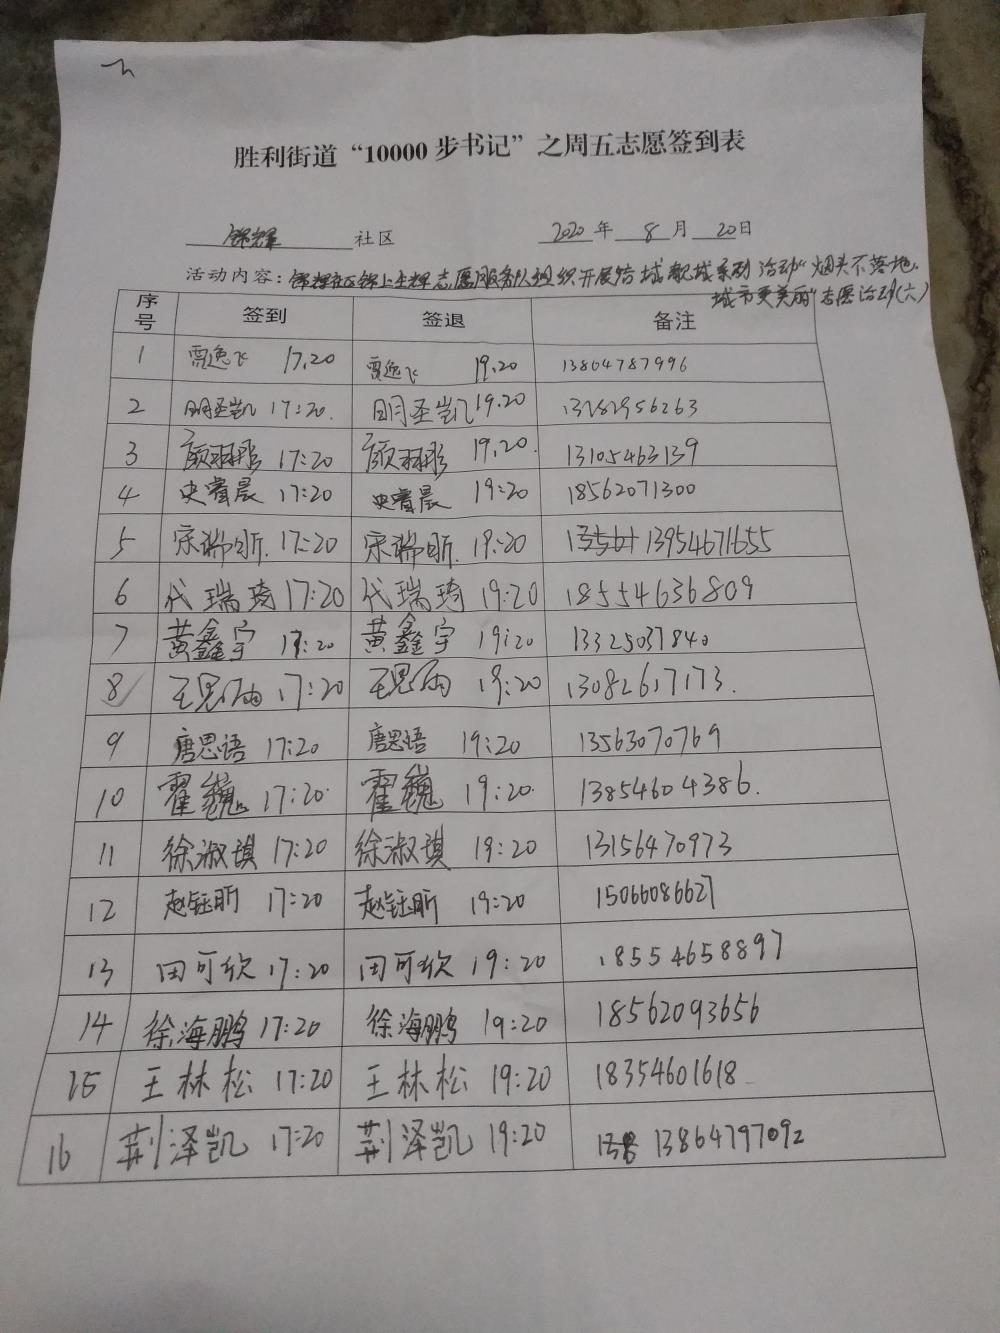 胜利街道“10000步书记”之周五志愿签到表
锦辉 社区 2020年 8月 20日
活动内容：锦辉社区锦上生辉志愿服务队组织开展 活动“烟头不落地，
城市更美丽”志愿活动(六)
序号 签到 签退 备注
1 雷逸飞 17.20 雷逸飞 19.20 13804787996
2 明圣凯 17:20. 明圣凯 19.20 13282956263
3 颜羽彤 17:20 颜羽彤 19.20. 13105463139
4 史睿晨 17:20 史睿晨 19:20 18562071300
5 宋瑞昕. 17:20 宋瑞昕. 19:20 13954671655
6 代瑞琦 17:20 代瑞琦 19:20 18554636809
7 黄鑫宇 17:20 黄鑫宇 19:20 13325037840
8 王思雨 17:20 王思雨 19:20 13082617173.
9 唐思语 17:20 唐思语 19:20 13563070769
10 霍巍 17:20. 霍巍 19:20. 13854604386.
11 徐淑琪 17:20 徐淑琪 19:20 13156470973
12 赵钰昕 17:20 赵钰昕 19:20 15066086627
13 田可欣 17:20 田可欣 19:20 18554658897
14 徐海鹏 17:20 徐海鹏 19:20 18562093656
15 王林松 17:20 王林松 19:20 18354601618
16 荆泽凯 17:20 荆泽凯 19:20 13864797092